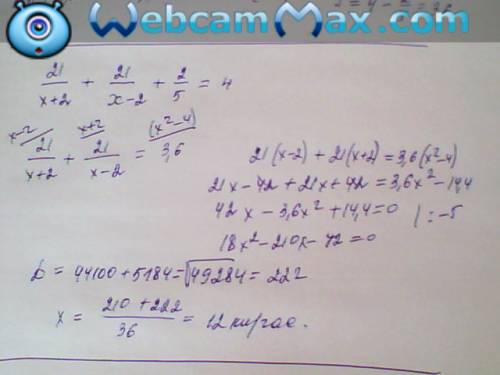 WebcamMax.com
21/(x+2) + 21/(x-2) + 2/5 = 4
x-2 x+2 (x²-4)
21/(x+2) + 21/(x-2) = 3,6
21(x-2) + 21(x+2) = 3,6(x²-4)
21x - 42 + 21x + 42 = 3,6x² - 14,4
42x - 3,6x² + 14,4 = 0 | : -5
18x² - 210x - 72 = 0
D = 44100 + 5184 = √49284 = 222
x = (210 + 222)/36 = 12 км/час.